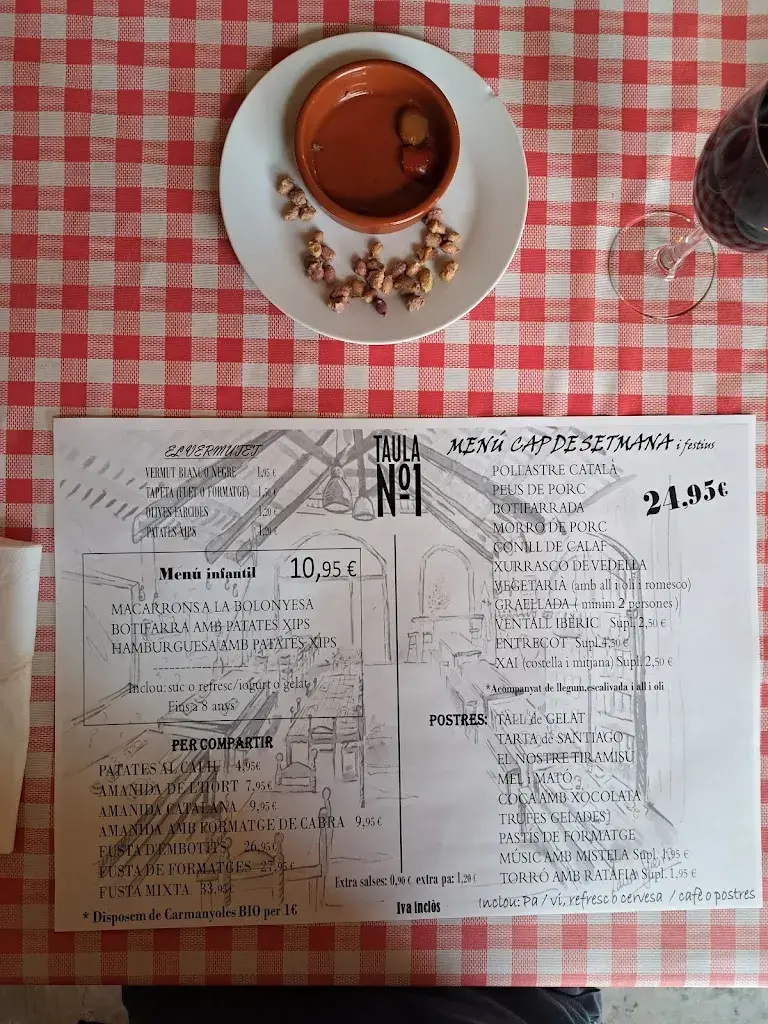 EL VERMUTET
VERMUT BLANC O NEGRE 1,95 €
TAPETA (FUET O FORMATGE) 1,50 €
OLIVES FARCIDES 1,20 €
PATATES XIPS 1,20 €
Menú infantil 10,95 €
MACARRONS A LA BOLONYESA
BOTIFARRA AMB PATATES XIPS
HAMBURGUESA AMB PATATES XIPS
Inclou: suc o refresc/iogurt o gelat
Fins a 8 anys
PER COMPARTIR
PATATES AL CALIU 4,95€
AMANIDA DE L'HORT 7,95 €
AMANIDA CATALANA 9,95 €
AMANIDA AMB FORMATGE DE CABRA 9,95 €
FUSTA D'EMBOTITS 26,95 €
FUSTA DE FORMATGES 27,95 €
FUSTA MIXTA 33,95€
* Disposem de Carmanyoles BIO per 1€
TAULA
Nº1
Extra salses: 0,90 € extra pa: 1,20 €
Iva Inclòs
MENÚ CAP DE SETMANA i festius
24,95€
POLLASTRE CATALÀ
PEUS DE PORC
BOTIFARRADA
MORRO DE PORC
CONILL DE CALAF
XURRASCO DE VEDELLA
VEGETARIÀ (amb all i oli i romesco)
GRAELLADA ( mínim 2 persones )
VENTALL IBÈRIC Supl. 2,50 €
ENTRECOT Supl. 4,50 €
XAI (costella i mitjana) Supl. 2,50 €
*Acompanyat de llegum, escalivada i all i oli
POSTRES: TALL de GELAT
TARTA de SANTIAGO
EL NOSTRE TIRAMISÚ
MEL i MATÓ
COCA AMB XOCOLATA
TRUFES GELADES
PASTIS DE FORMATGE
MÚSIC AMB MISTELA Supl. 1,95 €
TORRÓ AMB RATAFIA Supl. 1,95 €
Inclou: Pa / vi, refresc o cervesa / cafè o postres